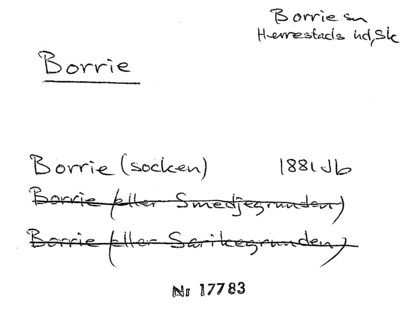 Borrie sn
Herrestads hd, Sk
Borrie
Borrie (socken) 1881 Jb
Borrie (eller Smedjegrunden)
Borrie (eller Sarikegrunden)
Nr 17783